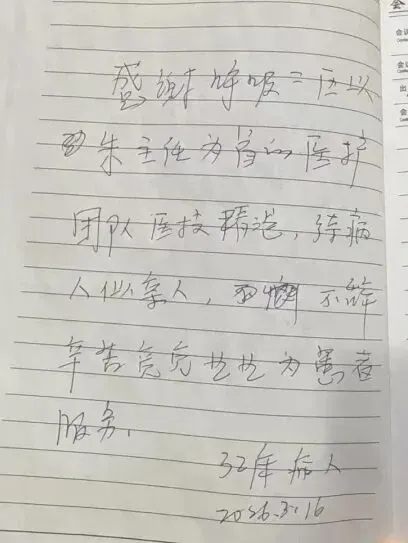 感谢呼吸二区以
朱主任为首的医护
团队医技精湛，待病
人似亲人，不辞
辛苦兢兢业业为患者
服务，
32床病人
2026.3.16
会
会议
会议
出
会